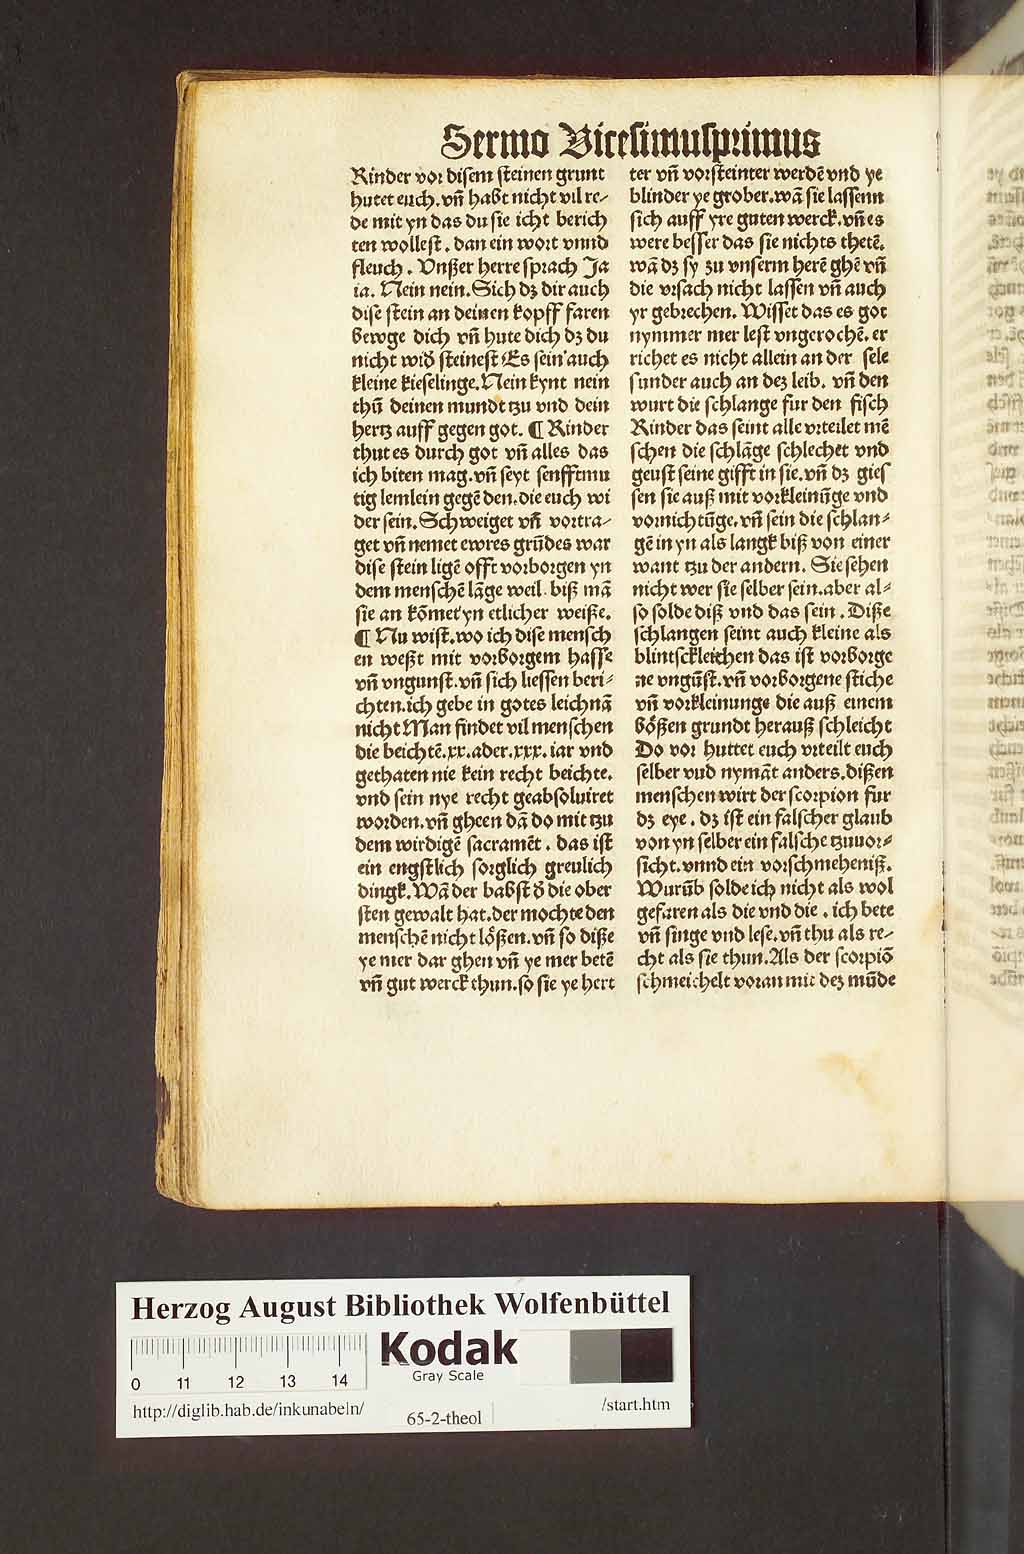 Sermo Vicesimusprimus
Kinder vor disem steinen grunt
hutet euch. vñ habt nicht vil re⸗
de mit yn das du sie icht berich
ten wollest. dan ein wort vnnd
fleuch. Vnßer herre sprach Ja
ia. Nein nein. Sich dz dir auch
dise stein an deinen kopff faren
bewge dich vñ hute dich dz du
nicht wid̕ steinest Es sein auch
kleine kieselinge. Nein kynt nein
thů deinen mundt tzu vnd dein
hertz auff gegen got. ¶ Kinder
thut es durch got vñ alles das
ich biten mag. vñ seyt senfftmu
tig lemlein gegē den. die euch wi
der sein. Schweiget vñ vortra⸗
get vñ nemet ewres grūdes war
dise stein ligē offt vorborgen yn
dem menschē lāge weil biß mā
sie an kōmet yn etlicher weiße.
¶ Nu wist. wo ich dise mensch
en weßt mit vorborgem hasse
vñ vngunst. vñ sich liessen beri⸗
chten. ich gebe in gotes leichnā
nicht Man findet vil menschen
die beichtē. xx. ader. xxx. iar vnd
gethaten nie kein recht beichte.
vnd sein nye recht geabsoluiret
worden. vñ gheen dā do mit tzu
dem wirdigē sacramēt. das ist
ein engstlich sorglich greulich
dingk. Wā der babst d̕ die ober
sten gewalt hat. der mochte den
menschē nicht lößen. vñ so diße
ye mer dar ghen vñ ye mer betē
vñ gut werck thun. so sie ye hert
ter vñ vorsteinter werdē vnd ye
blinder ye grober. wā sie lassenn
sich auff yre guten werck. vñ es
were besser das sie nichts thetē.
wā dz sy zu vnserm herē ghē vñ
die vrsach nicht lassen vñ auch
yr gebrechen. Wisset das es got
nymmer mer lest vngerochē. er
richet es nicht allein an der sele
sunder auch an dez leib. vñ den
wurt die schlange fur den fisch
Kinder das seint alle vrteilet mē
schen die schlāge schlechet vnd
geust seine gifft in sie. vñ dz gies
sen sie auß mit vorkleinūge vnd
vornichtūge. vñ sein die schlan⸗
gē in yn als langk biß von einer
want tzu der andern. Sie sehen
nicht wer sie selber sein. aber al⸗
so solde diß vnd das sein. Diße
schlangen seint auch kleine als
blintsckleichen das ist vorborge
ne vngūst. vñ vorborgene stiche
vñ vorkleinunge die auß einem
bößen grundt herauß schleicht
Do vor huttet euch vrteilt euch
selber vnd nymāt anders. dißen
menschen wirt der scorpion fur
dz eye. dz ist ein falscher glaub
von yn selber ein falsche tzuuor⸗
sicht. vnnd ein vorschmeheniß.
Wurūb solde ich nicht als wol
gefaren als die vnd die. ich bete
vñ singe vnd lese. vñ thu als re⸗
cht als sie thun. Als der scorpiō
schmeichelt voran mit dez mūde
Herzog August Bibliothek Wolfenbüttel
Kodak
Gray Scale
0 11 12 13 14
http://diglib.hab.de/inkunabeln/
65-2-theol
/start.htm